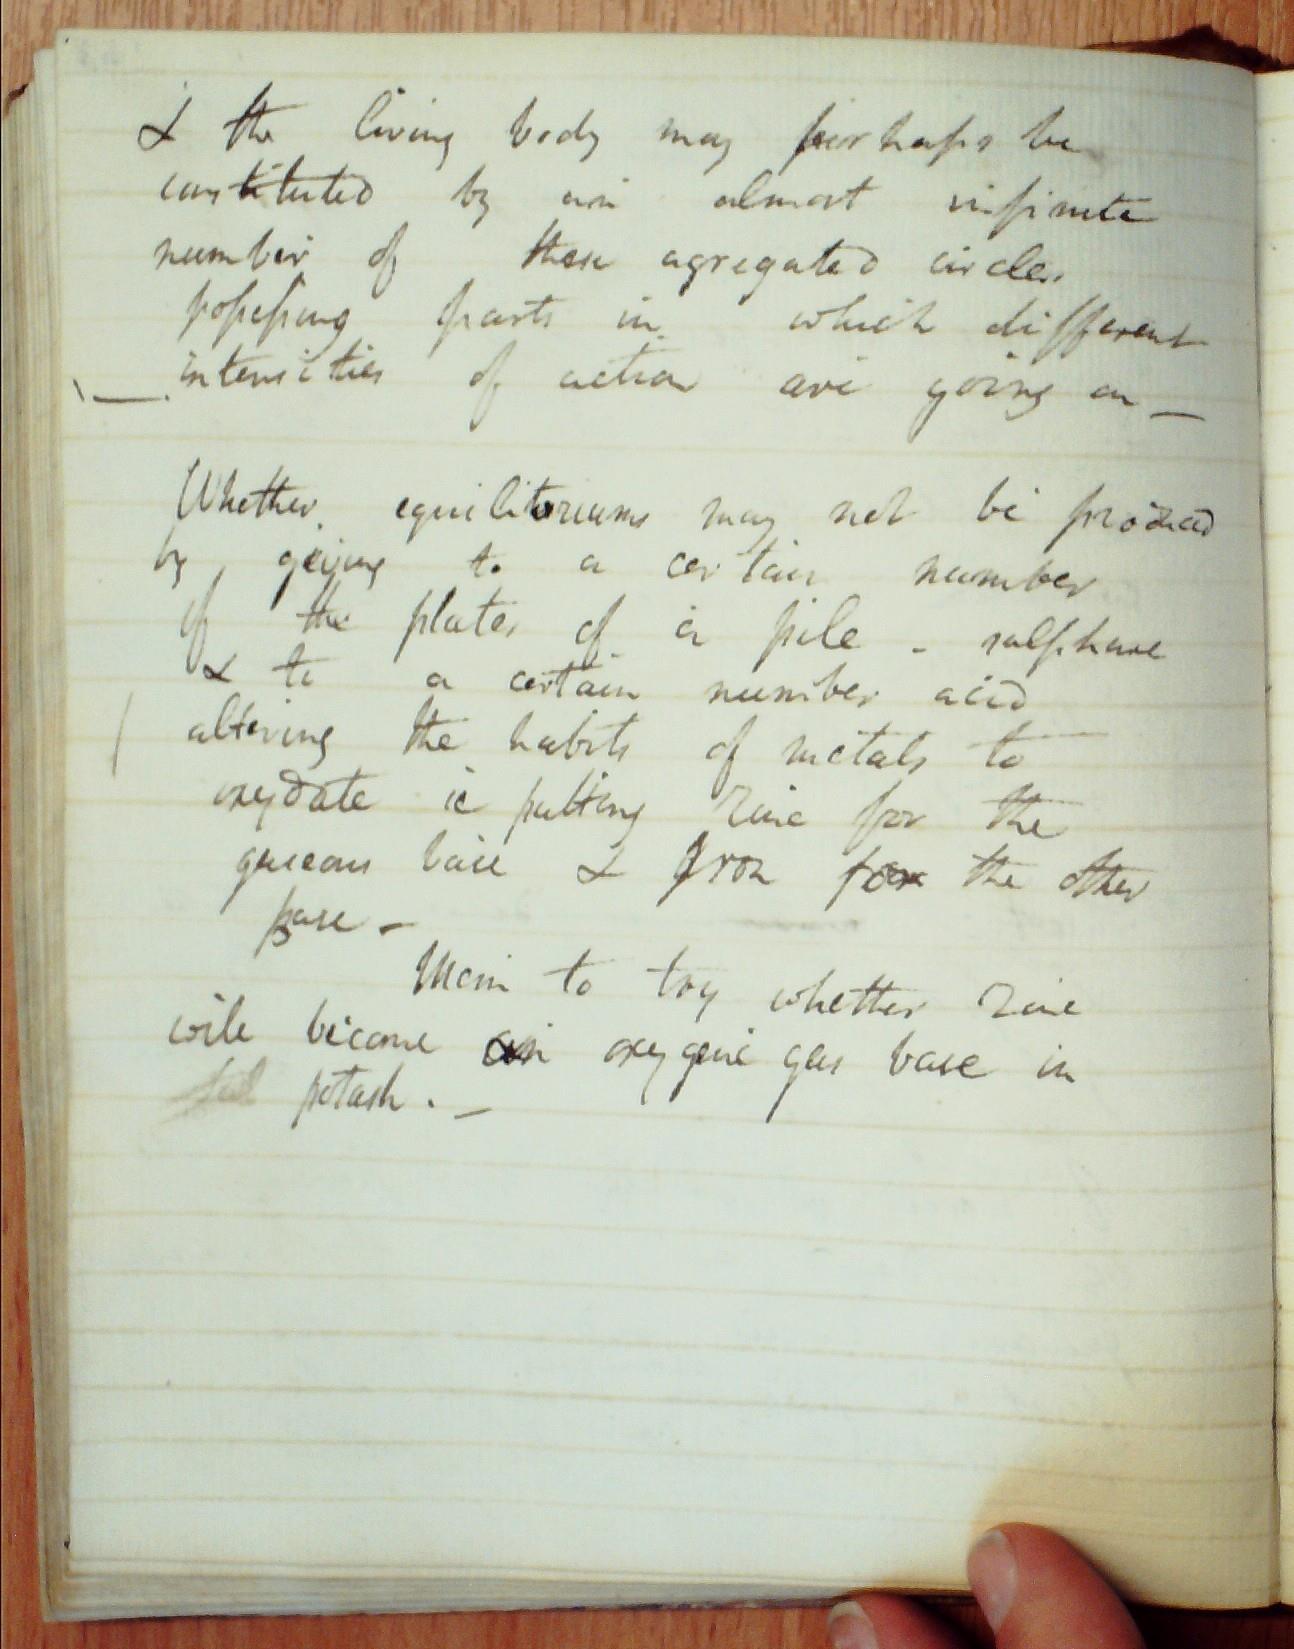 & the living body may perhaps be
constituted by an almost infinite
number of these agregated circles
possessing parts in which different
intensities of action are going on —
Whether equilibriums may not be produced
by giving to a certain number
of the plates of a pile - sulphure
& to a certain number acid
altering the habits of metals to
oxydate ie putting Zinc for the
gaseous base & Iron for the other
base -
Mem to try whether Zinc
will become an oxygene gas base in
potash . —